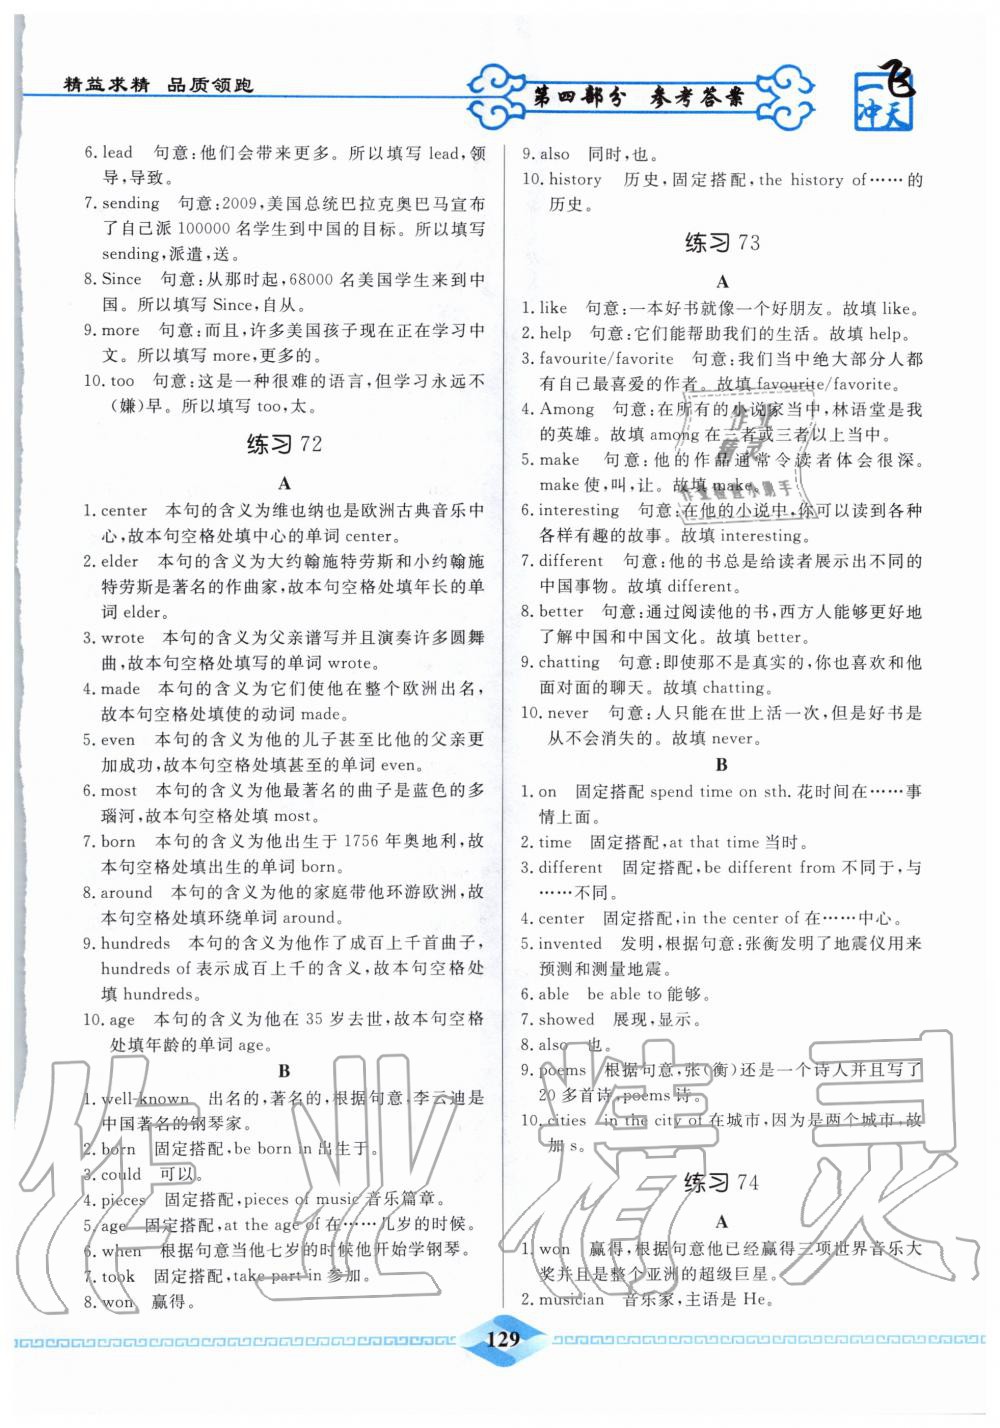 精益求精 品质领跑
第四部分 参考答案
一飞冲天
6. lead 句意:他们会带来更多。所以填写 lead,领
导,导致。
7. sending 句意:2009,美国总统巴拉克奥巴马宣布
了自己派 100000 名学生到中国的目标。所以填写
sending,派遣,送。
8. Since 句意:从那时起,68000 名美国学生来到中
国。所以填写 Since,自从。
9. more 句意:而且,许多美国孩子现在正在学习中
文。所以填写 more,更多的。
10. too 句意:这是一种很难的语言,但学习永远不
(嫌)早。所以填写 too,太。
练习 72
A
1. center 本句的含义为维也纳也是欧洲古典音乐中
心,故本句空格处填中心的单词 center。
2. elder 本句的含义为大约翰施特劳斯和小约翰施
特劳斯是著名的作曲家,故本句空格处填年长的单
词 elder。
3. wrote 本句的含义为父亲谱写并且演奏许多圆舞
曲,故本句空格处填写的单词 wrote。
4. made 本句的含义为它们使他在整个欧洲出名,
故本句空格处填使的动词 made。
5. even 本句的含义为他的儿子甚至比他的父亲更
加成功,故本句空格处填甚至的单词 even。
6. most 本句的含义为他最著名的曲子是蓝色的多
瑙河,故本句空格处填 most。
7. born 本句的含义为他出生于 1756 年奥地利,故
本句空格处填出生的单词 born。
8. around 本句的含义为他的家庭带他环游欧洲,故
本句空格处填环绕单词 around。
9. hundreds 本句的含义为他作了成百上千首曲子,
hundreds of 表示成百上千的含义,故本句空格处
填 hundreds。
10. age 本句的含义为他在 35 岁去世,故本句空格
处填年龄的单词 age。
B
1. well-known 出名的,著名的,根据句意,李云迪是
中国著名的钢琴家。
2. born 固定搭配,be born in 出生于。
3. could 可以。
4. pieces 固定搭配,pieces of music 音乐篇章。
5. age 固定搭配,at the age of 在……几岁的时候。
6. when 根据句意当他七岁的时候他开始学钢琴。
7. took 固定搭配,take part in 参加。
8. won 赢得。
9. also 同时,也。
10. history 历史,固定搭配,the history of……的
历史。
练习 73
A
1. like 句意:一本好书就像一个好朋友。故填 like。
2. help 句意:它们能帮助我们的生活。故填 help。
3. favourite/favorite 句意:我们当中绝大部分人都
有自己最喜爱的作者。故填 favourite/favorite。
4. Among 句意:在所有的小说家当中,林语堂是我
的英雄。故填 among 在三者或三者以上当中。
5. make 句意:他的作品通常令读者体会很深。
make 使,叫,让。故填 make。
6. interesting 句意:在他的小说中,你可以读到各种
各样有趣的故事。故填 interesting。
7. different 句意:他的书总是给读者展示出不同的
中国事物。故填 different。
8. better 句意:通过阅读他的书,西方人能够更好地
了解中国和中国文化。故填 better。
9. chatting 句意:即使那不是真实的,你也喜欢和他
面对面的聊天。故填 chatting。
10. never 句意:人只能在世上活一次,但是好书是
从不会消失的。故填 never。
B
1. on 固定搭配 spend time on sth. 花时间在……事
情上面。
2. time 固定搭配,at that time 当时。
3. different 固定搭配,be different from 不同于,与
……不同。
4. center 固定搭配,in the center of 在……中心。
5. invented 发明,根据句意:张衡发明了地震仪用来
预测和测量地震。
6. able be able to 能够。
7. showed 展现,显示。
8. also 也。
9. poems 根据句意,张(衡)还是一个诗人并且写了
20 多首诗,poems 诗。
10. cities in the city of 在城市,因为是两个城市,故
加 s。
练习 74
A
1. won 赢得,根据句意他已经赢得三项世界音乐大
奖并且是整个亚洲的超级巨星。
2. musician 音乐家,主语是 He。
129
作业精灵
作业精灵
作业检查小助手